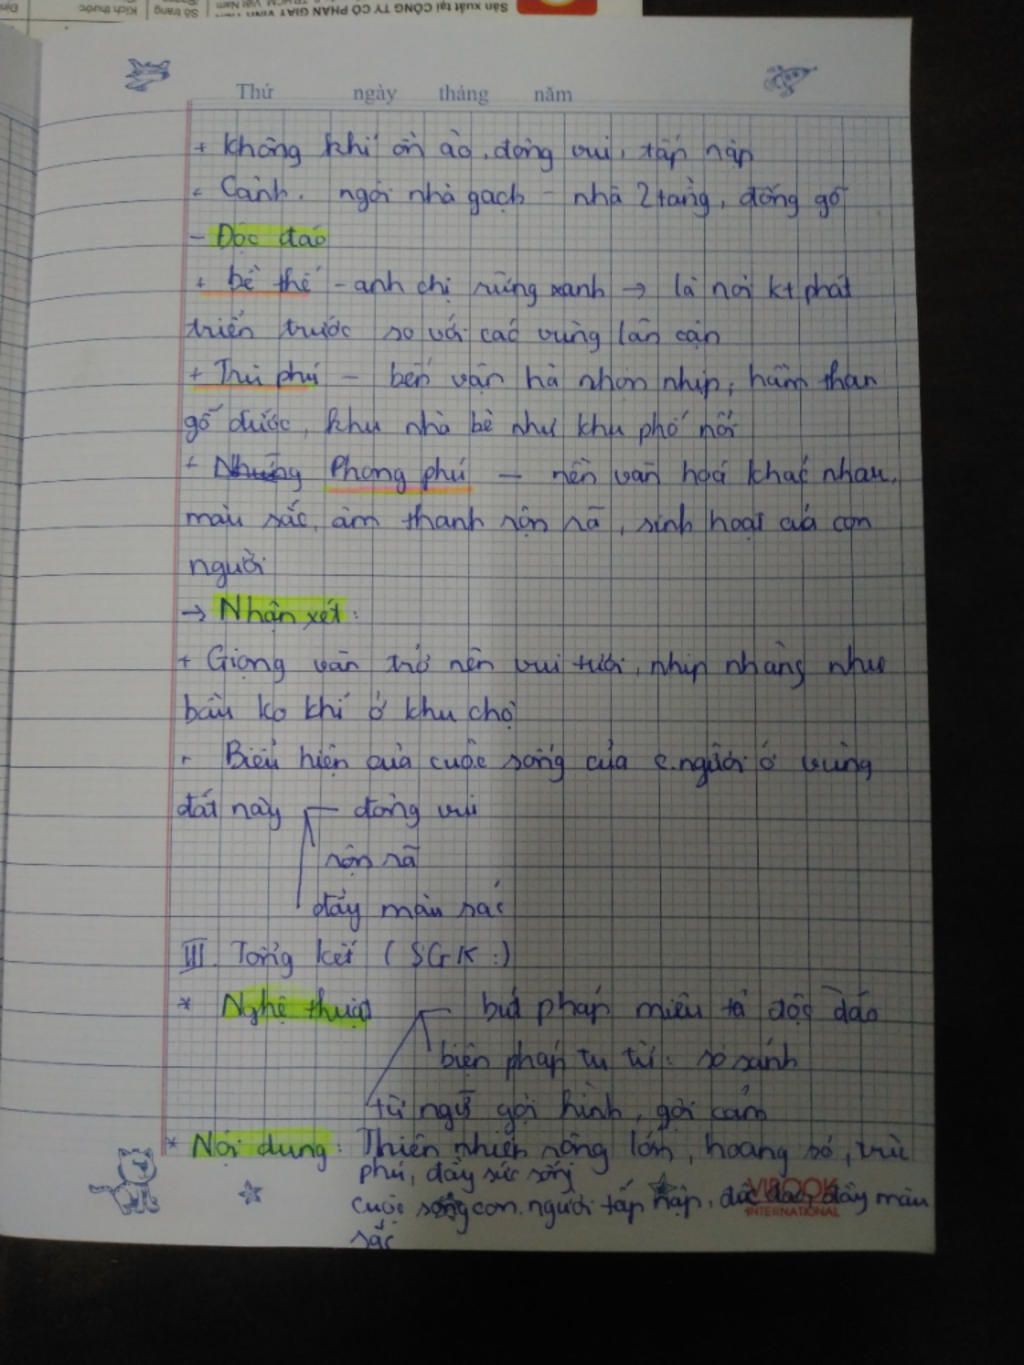 Sản xuất tại CÔNG TY CỔ PHẦN GIẤY VĨNH
Số trang
Kích thước
Thứ ngày tháng năm
+ Không khí ồn ào, đông vui, tấp nập
+ Cảnh. ngôi nhà gạch - nhà 2 tầng, đống gỗ
- Độc đáo
+ bề thế - anh chị rừng xanh → là nơi kt phát
triển trước so với các vùng lân cận
+ Trù phú - bến vận hà nhộn nhịp, hầm than
gỗ đước, khu nhà bè như khu phố nổi
+ Phong phú - nền văn hoá khác nhau,
màu sắc, âm thanh rộn rã, sinh hoạt của con
người
→ Nhận xét:
+ Giọng văn trở nên vui tươi, nhịp nhàng như
bầu ko khí ở khu chợ
+ Biểu hiện của cuộc sống của c.người ở vùng
đất này - đông vui
rộn rã
đầy màu sắc
III. Tổng kết (SGK:)
* Nghệ thuật - bút pháp miêu tả độc đáo
biện pháp tu từ: so sánh
từ ngữ gợi hình, gợi cảm
* Nội dung: Thiên nhiên rộng lớn, hoang sơ, trù
phú, đầy sức sống
cuộc sống con người tấp nập, độc đáo, đầy màu
sắc
VIBOOK
INTERNATIONAL